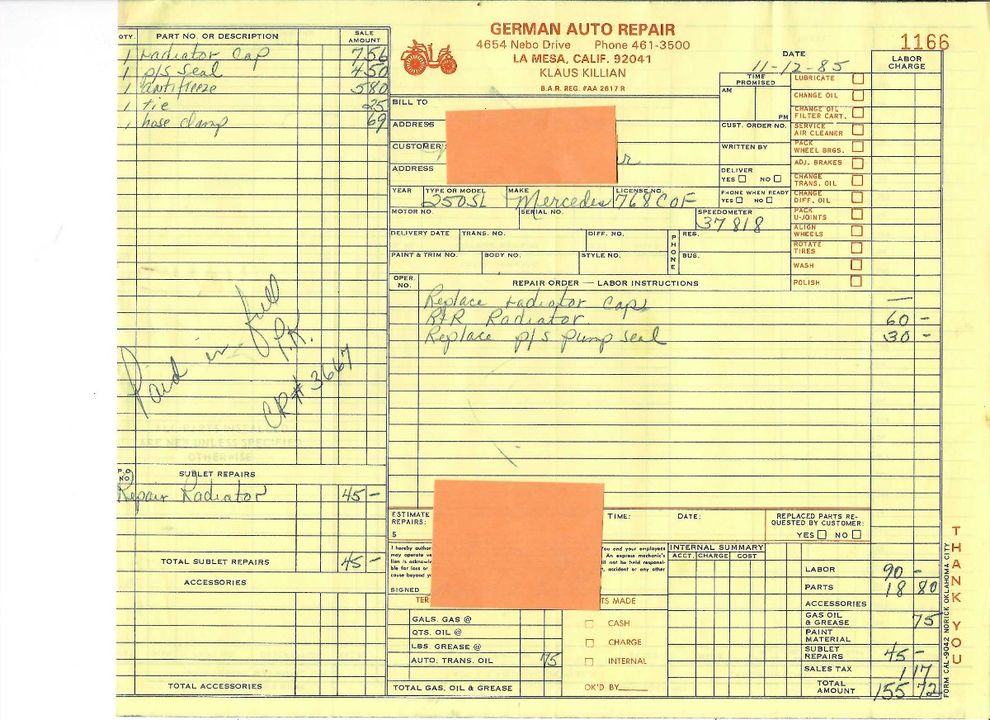 GERMAN AUTO REPAIR
4654 Nebo Drive Phone 461-3500
LA MESA, CALIF. 92041
KLAUS KILLIAN
B.A.R. REG. #AA 2617 R
1166
DATE
11-12-85
QTY. PART NO. OR DESCRIPTION SALE AMOUNT
1 radiator Cap 7 56
1 p/s seal 4 50
1 antifreeze 5 80
1 tie 25
1 hose clamp 69
Paid in full
P.K.
CK# 3667
SUBLET REPAIRS
Repair Radiator 45 -
TOTAL SUBLET REPAIRS 45 -
ACCESSORIES
TOTAL ACCESSORIES
BILL TO
ADDRESS
CUSTOMER
ADDRESS
TIME PROMISED
AM
PM
CUST. ORDER NO.
WRITTEN BY
DELIVER
YES NO
PHONE WHEN READY
YES NO
YEAR TYPE OR MODEL MAKE LICENSE NO.
250SL Mercedes 768COF
MOTOR NO. SERIAL NO. SPEEDOMETER
37818
DELIVERY DATE TRANS. NO. DIFF. NO. PHONE RES.
PAINT & TRIM NO. BODY NO. STYLE NO. BUS.
LABOR CHARGE
LUBRICATE
CHANGE OIL
CHANGE OIL FILTER CART.
SERVICE AIR CLEANER
PACK WHEEL BRGS.
ADJ. BRAKES
CHANGE TRANS. OIL
CHANGE DIFF. OIL
PACK U-JOINTS
ALIGN WHEELS
ROTATE TIRES
WASH
POLISH
OPER. NO. REPAIR ORDER — LABOR INSTRUCTIONS
Replace radiator Cap —
R+R Radiator 60 -
Replace p/s pump seal 30 -
ESTIMATE REPAIRS: TIME: DATE:
$
REPLACED PARTS REQUESTED BY CUSTOMER:
YES NO
SIGNED
TS MADE
GALS. GAS @
QTS. OIL @
LBS. GREASE @
AUTO. TRANS. OIL 75
TOTAL GAS, OIL & GREASE
CASH
CHARGE
INTERNAL
OK'D BY
INTERNAL SUMMARY
ACCT. CHARGE COST
LABOR 90 -
PARTS 18 80
ACCESSORIES
GAS OIL & GREASE 75
PAINT MATERIAL
SUBLET REPAIRS 45 -
SALES TAX 1 17
TOTAL AMOUNT 155 72
FORM CAL-9042 NORICK OKLAHOMA CITY
THANK YOU